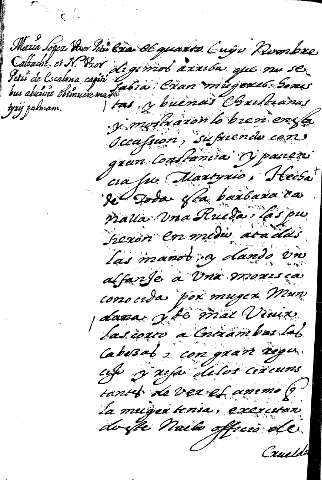 Maria Lopez Vxor Petri
Calbache, et N. Vxor
Petri de Escalona, capiti
bus
era el quarto Cuyo Nombre
diximos arriba que no se
sabia: Eran mugeres hones
tas, y buenas Christianas
y mostraron lo bien en esta
occasion, sufriendo con
gran Constancia y pacien
cia su Martyrio, Hecha
de toda esta barbara ca
nalla una Rueda: las pu
sieron en medio atadas
las manos, y dando un
alfanje a una morisca
conocida por muger Mun
dana y de mal Vivir
las corto a entrambas las
Cabezas: con gran rego
cijo y risa delos circuns
tantes de ver el animo q
la muger tenia, exercitan
do este Nuebo officio de
Crueldad